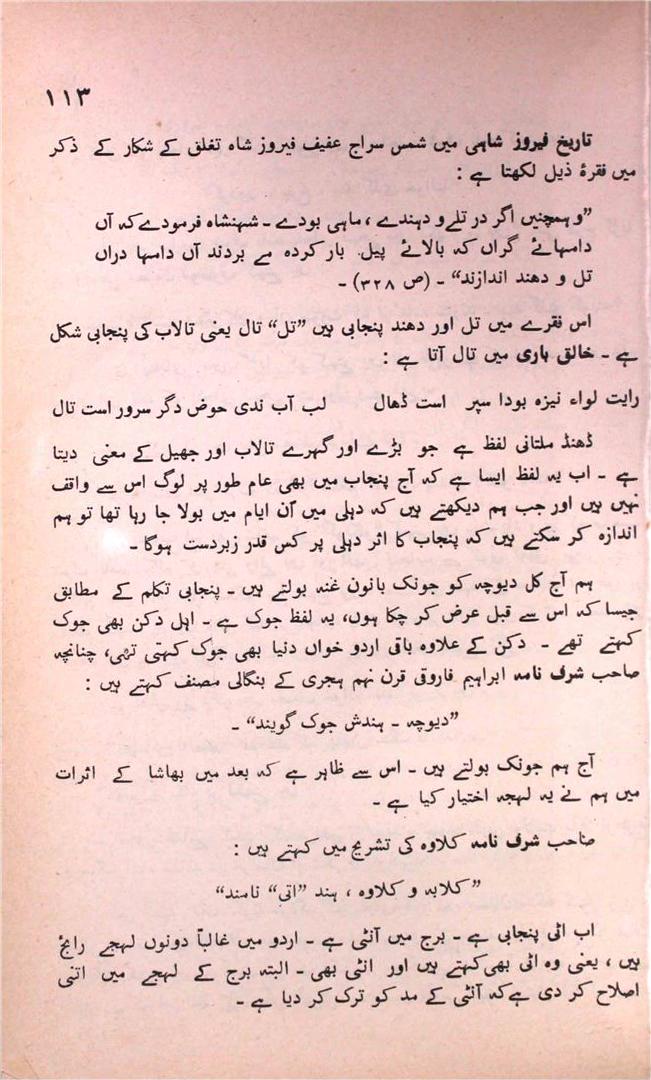 ۱۱۳
تاریخ فیروز شاہی میں شمس سراج عفیف فیروز شاہ تغلق کے شکار کے ذکر
میں فقرۂ ذیل لکھتا ہے :
”و ہمچنیں اگر در تلے و دہندے ، ماہی بودے ۔ شہنشاہ فرمودے کہ آں
دامہائے گراں کہ بالائے پیل بار کردہ مے بردند آں دامہا دراں
تل و دھند اندازند“ ۔ (ص ۳۲۸) ۔
اس فقرے میں تل اور دھند پنجابی ہیں ”تل“ تال یعنی تالاب کی پنجابی شکل
ہے ۔ خالق باری میں تال آتا ہے :
رایت لواء نیزہ بودا سپر است ڈھال لب آب ندی حوض دگر سرور است تال
ڈھنڈ ملتانی لفظ ہے جو بڑے اور گہرے تالاب اور جھیل کے معنی دیتا
ہے ۔ اب یہ لفظ ایسا ہے کہ آج پنجاب میں بھی عام طور پر لوگ اس سے واقف
نہیں ہیں اور جب ہم دیکھتے ہیں کہ دہلی میں اُن ایام میں بولا جا رہا تھا تو ہم
اندازہ کر سکتے ہیں کہ پنجاب کا اثر دہلی پر کس قدر زبردست ہوگا ۔
ہم آج کل دیوچہ کو جونک بانون غنہ بولتے ہیں ۔ پنجابی تکلم کے مطابق
جیسا کہ اس سے قبل عرض کر چکا ہوں، یہ لفظ جوک ہے ۔ اہل دکن بھی جوک
کہتے تھے ۔ دکن کے علاوہ باقی اردو خواں دنیا بھی جوک کہتی تھی، چنانچہ
صاحب شرف نامہ ابراہیم فاروقی قرن نہم ہجری کے بنگالی مصنف کہتے ہیں :
”دیوچہ ۔ ہندش جوک گویند“ ۔
آج ہم جونک بولتے ہیں ۔ اس سے ظاہر ہے کہ بعد میں بھاشا کے اثرات
میں ہم نے یہ لہجہ اختیار کیا ہے ۔
صاحب شرف نامہ کلاوہ کی تشریح میں کہتے ہیں :
”کلابہ و کلاوہ ، ہند ”اتی“ نامند“
اب اٹی پنجابی ہے ۔ برج میں آنٹی ہے ۔ اردو میں غالباً دونوں لہجے رایج
ہیں ، یعنی وہ اٹی بھی کہتے ہیں اور انٹی بھی ۔ البتہ برج کے لہجے میں اتنی
اصلاح کر دی ہے کہ آنٹی کے مد کو ترک کر دیا ہے ۔